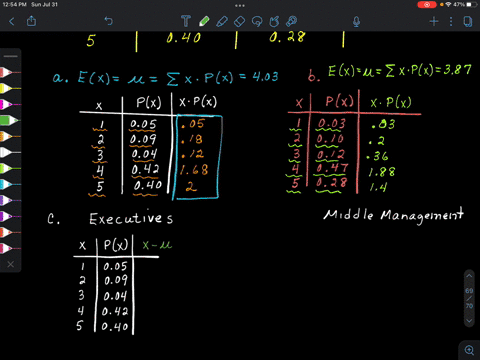 12:54 PM Sun Jul 31
47%
5 0.40 0.28
a. E(x) = μ = Σ x · P(x) = 4.03
b. E(x) = μ = Σ x · P(x) = 3.87
x P(x) x · P(x)
1 0.05 .05
2 0.09 .18
3 0.04 .12
4 0.42 1.68
5 0.40 2
x P(x) x · P(x)
1 0.03 .03
2 0.10 .2
3 0.12 .36
4 0.47 1.88
5 0.28 1.4
c. Executives
Middle Management
x P(x) x - μ
1 0.05
2 0.09
3 0.04
4 0.42
5 0.40
69
70